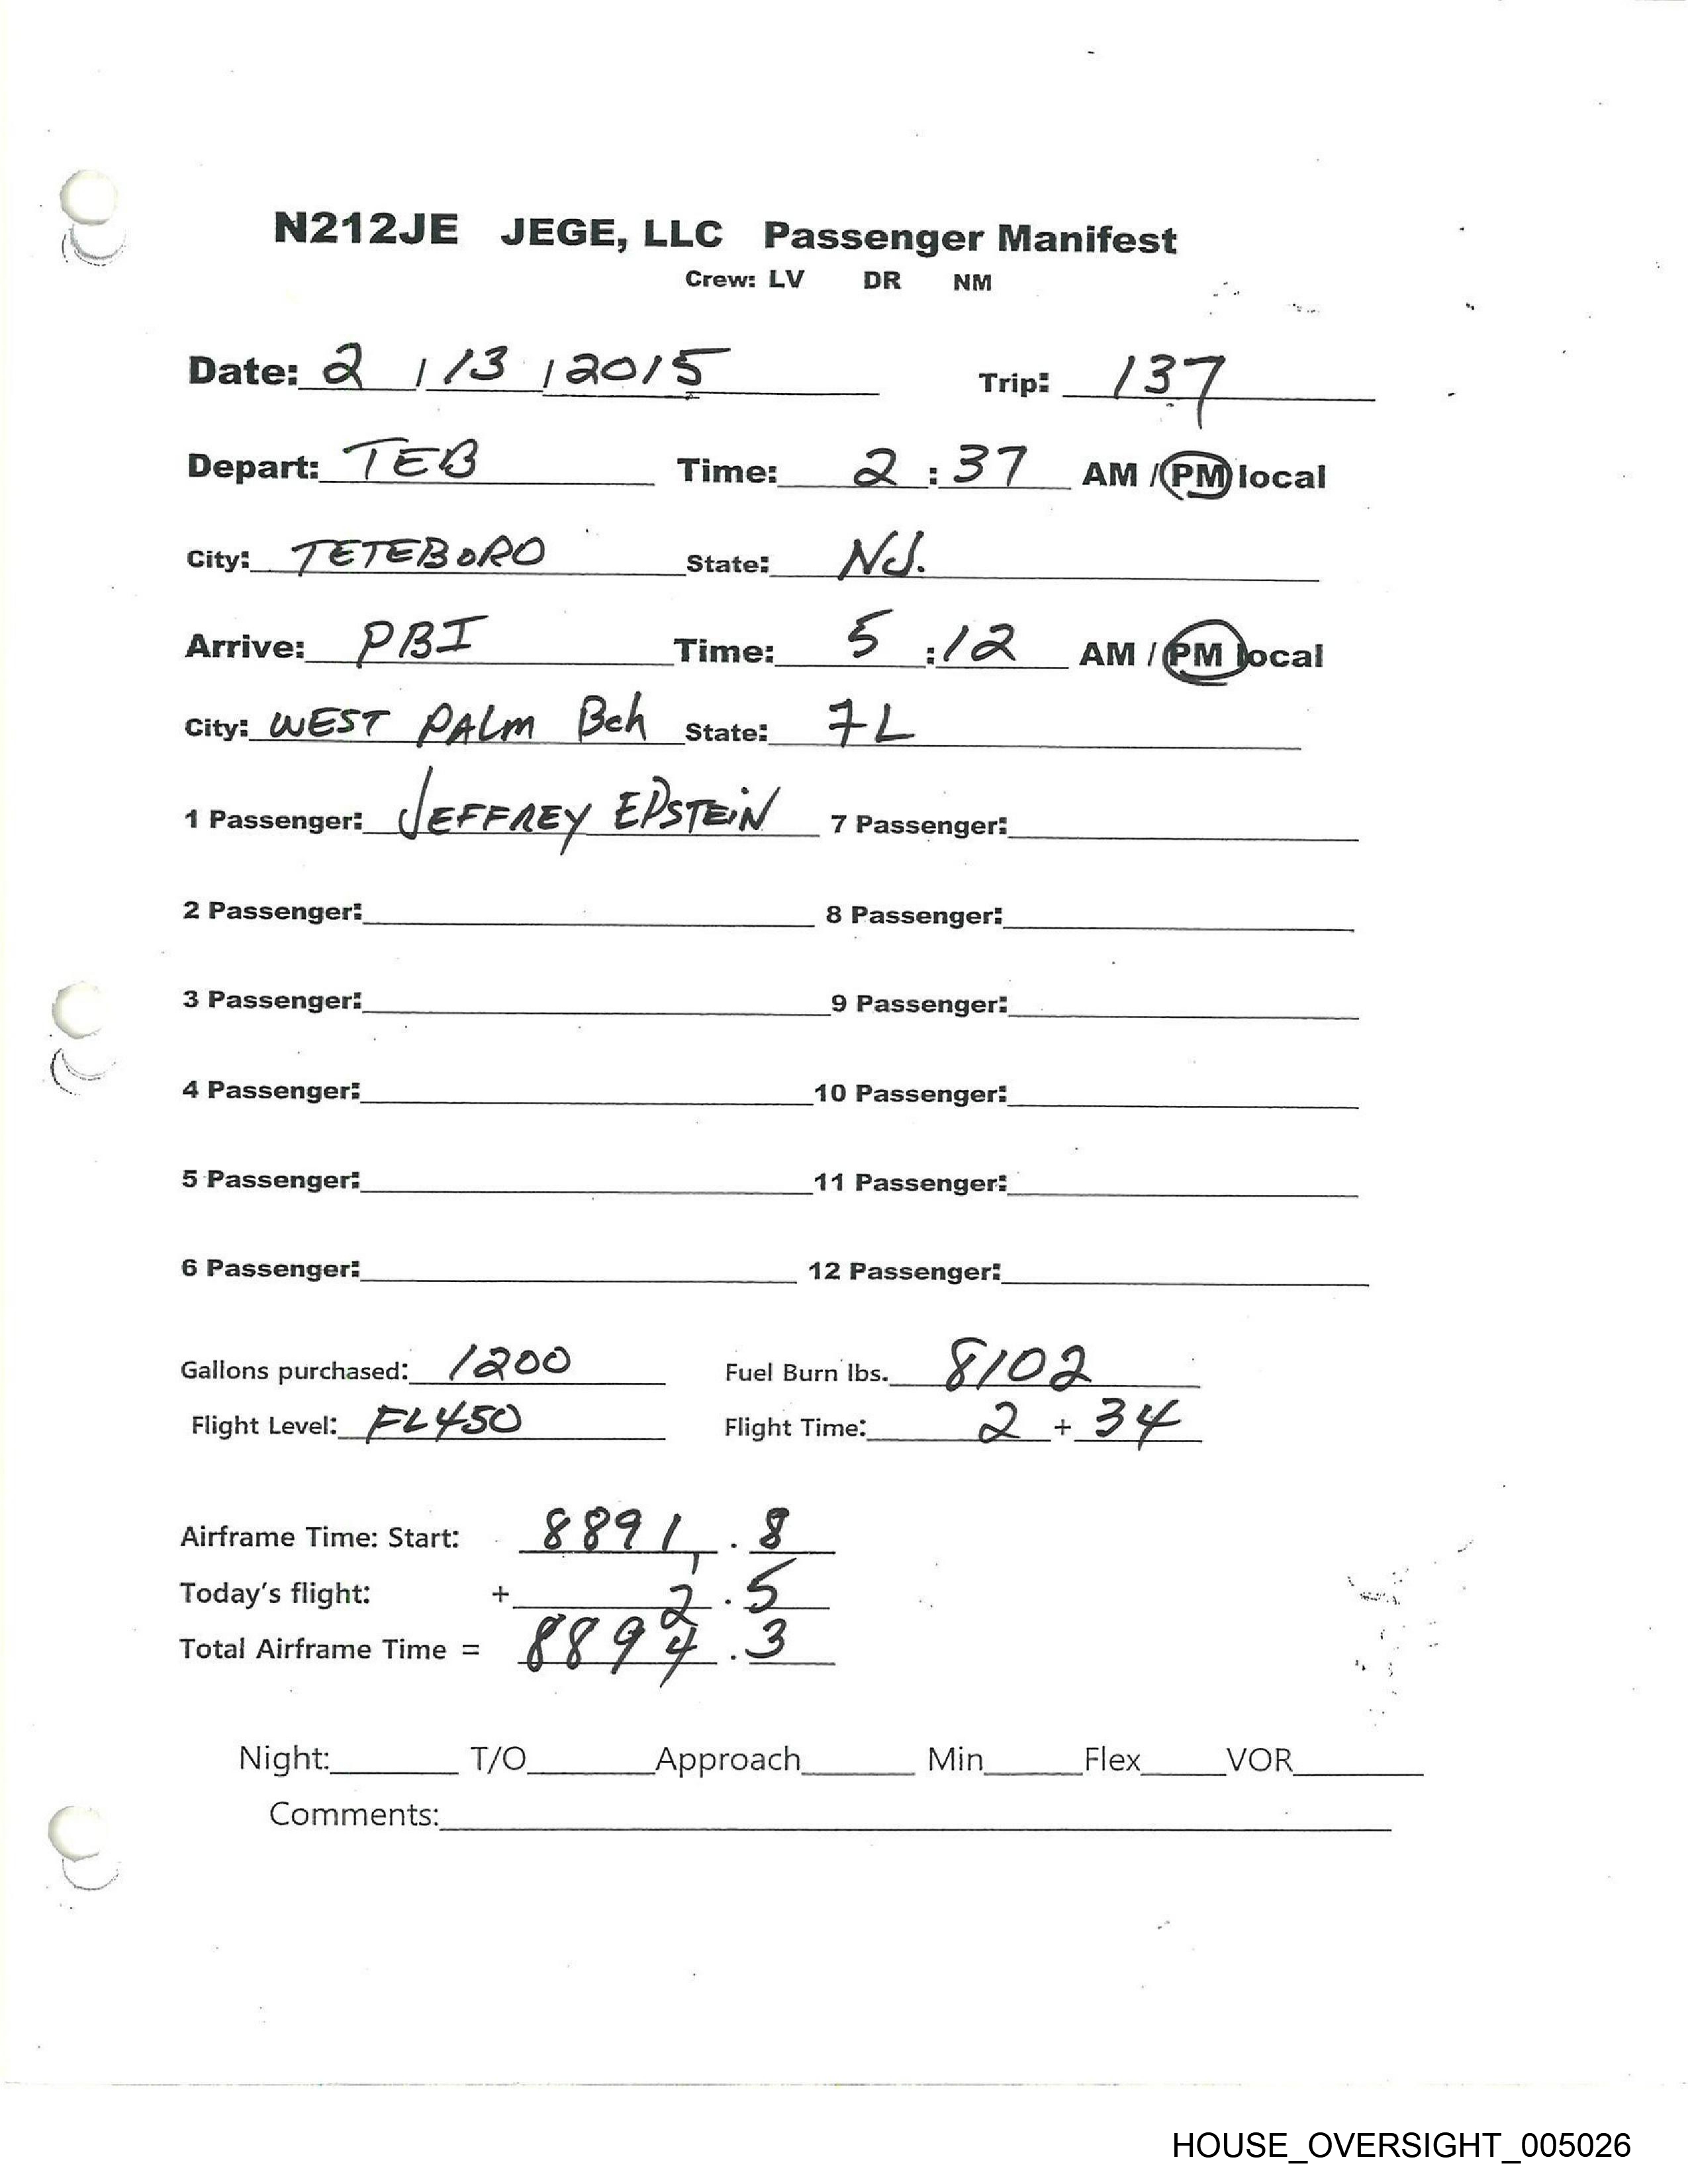 N212JE JEGE, LLC Passenger Manifest
Crew: LV DR NM
Date: 2 / 13 / 2015 Trip: 137
Depart: TEB Time: 2 : 37 AM / PM local
City: TETEBORO State: NJ.
Arrive: PBI Time: 5 : 12 AM / PM local
City: WEST PALM Bch State: FL
1 Passenger: JEFFREY EPSTEIN 7 Passenger:
2 Passenger: 8 Passenger:
3 Passenger: 9 Passenger:
4 Passenger: 10 Passenger:
5 Passenger: 11 Passenger:
6 Passenger: 12 Passenger:
Gallons purchased: 1200 Fuel Burn lbs. 8102
Flight Level: FL450 Flight Time: 2 + 34
Airframe Time: Start: 8891 . 8
Today's flight: + 2 . 5
Total Airframe Time = 8894 . 3
Night: T/O Approach Min Flex VOR
Comments:
HOUSE_OVERSIGHT_005026